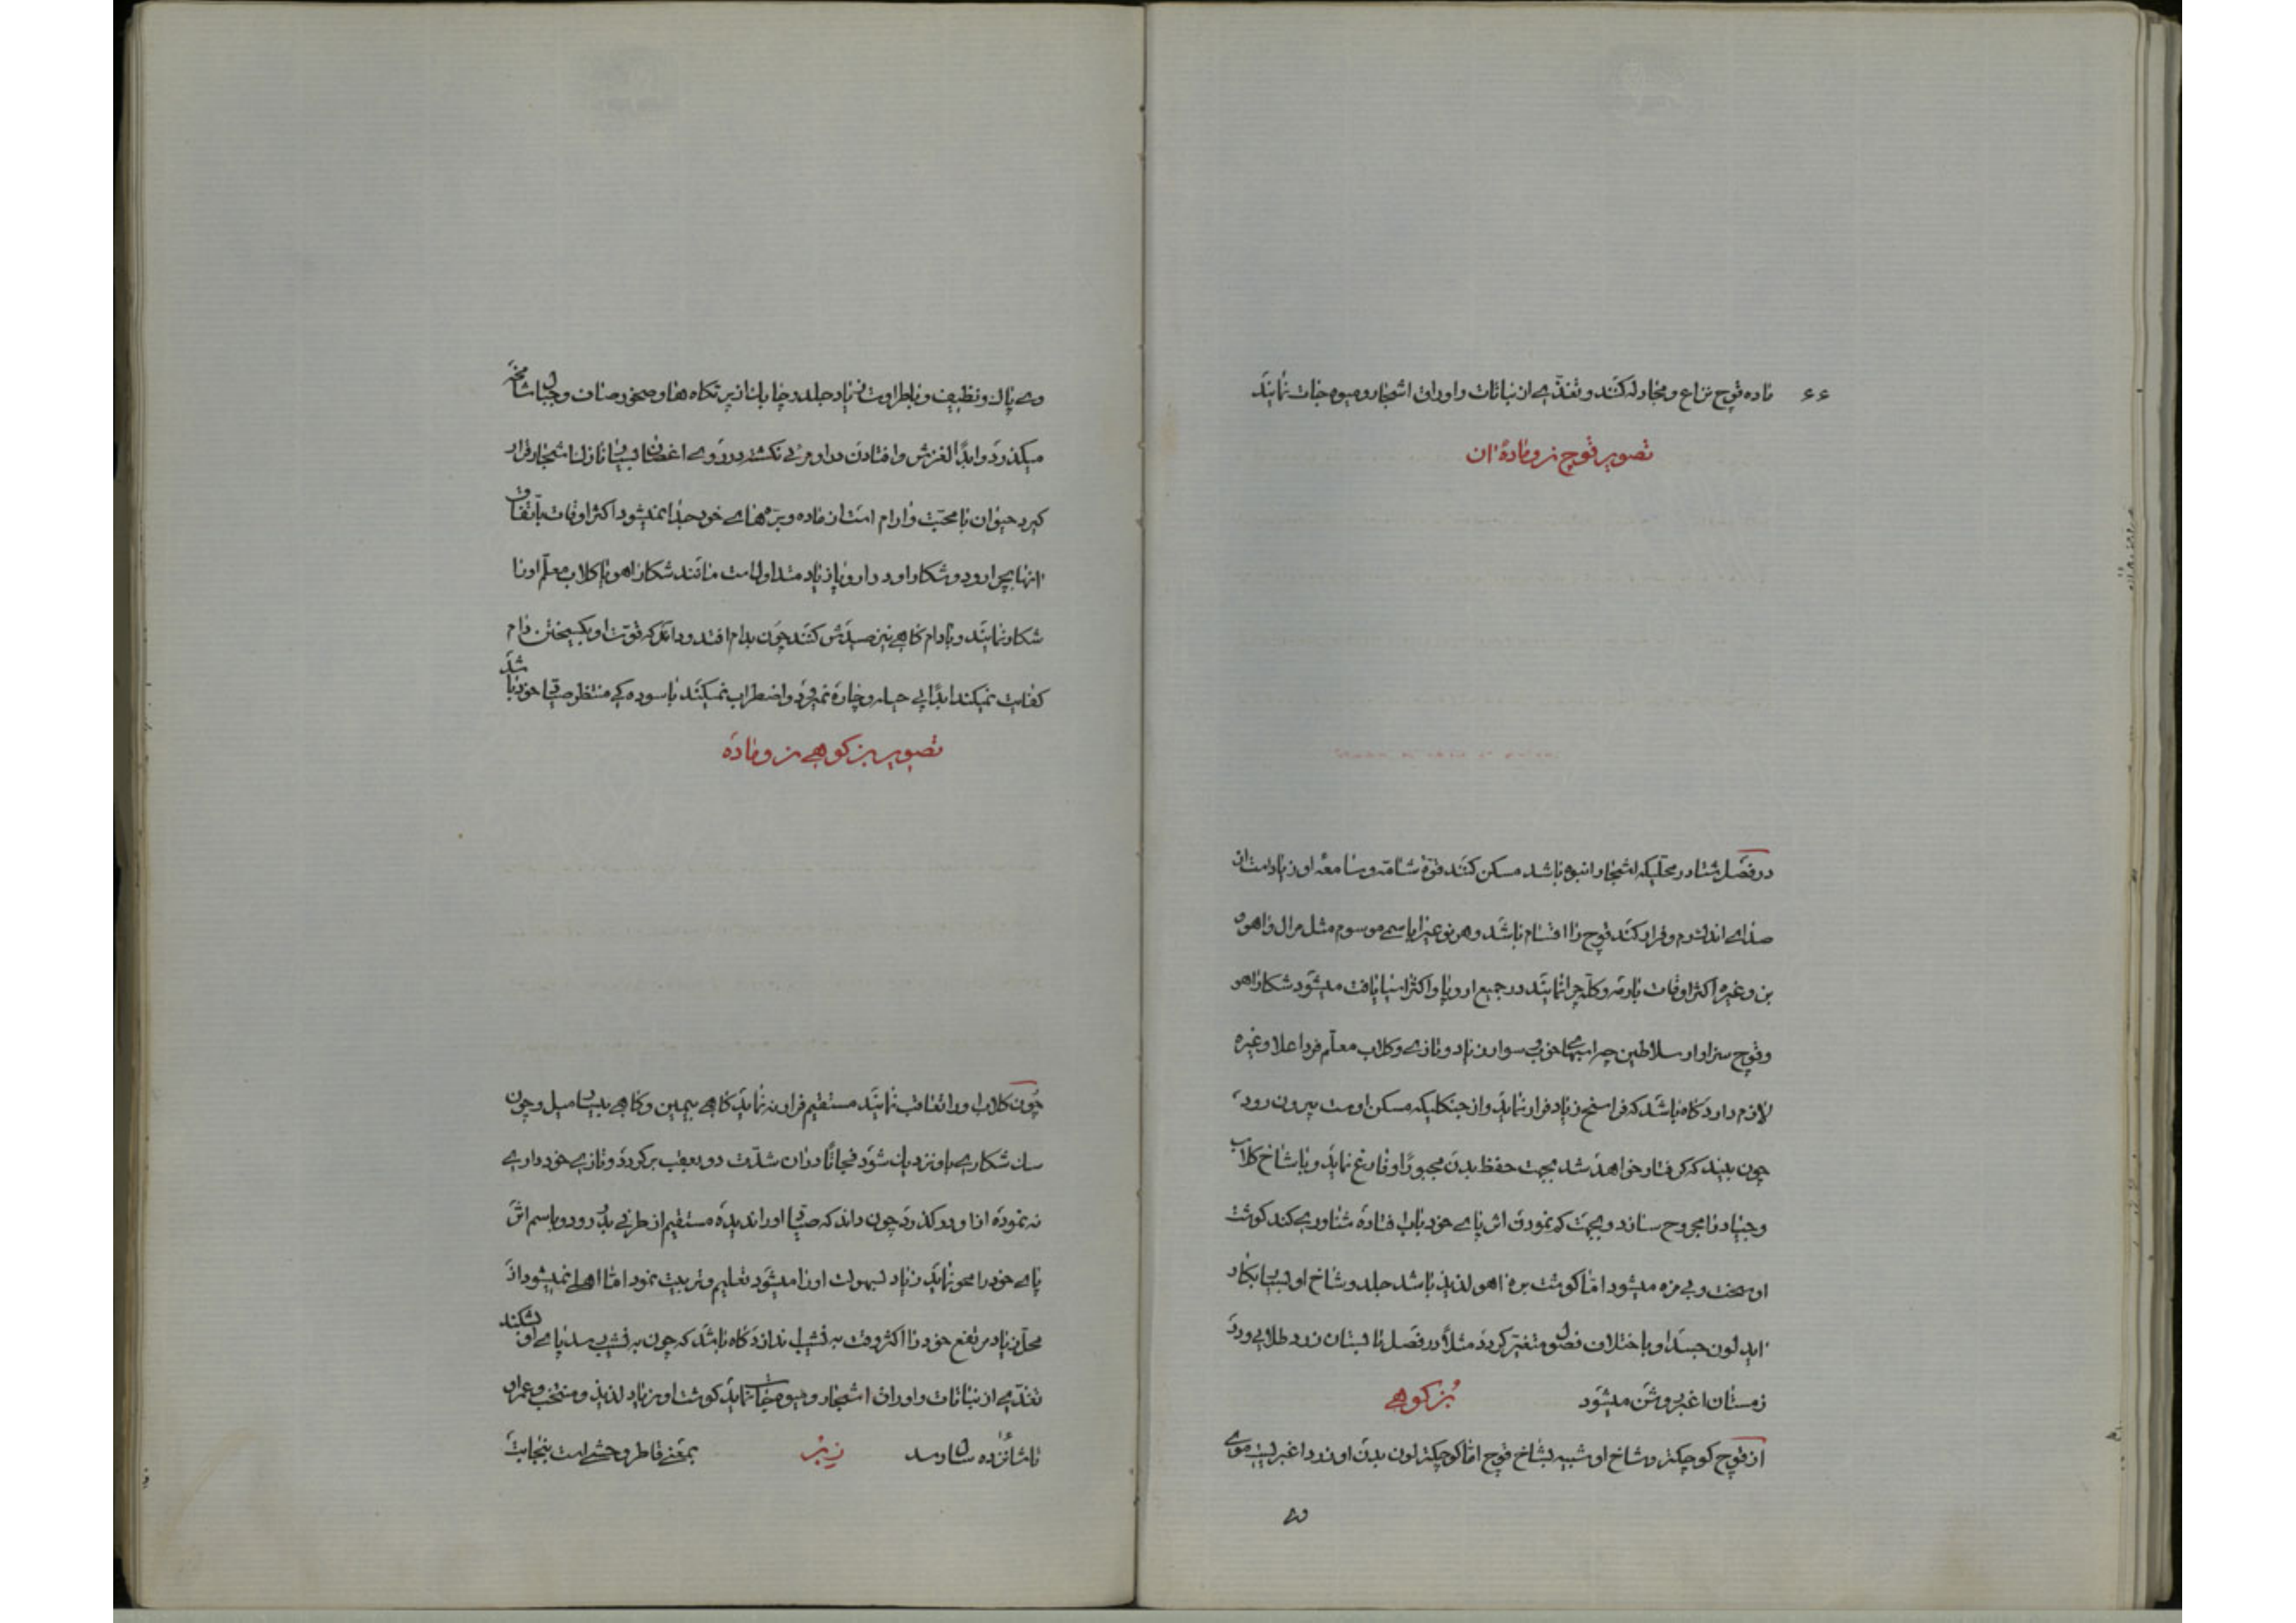 ۶۶
ماده قوچ نزاع و مجادله کنند و تغذی از نباتات و اوراق اشجار و میوه جات نمایند
تصویر قوچ نر و مادهٔ آن
در فصل شتا در محلیکه اشجار انبوه باشد مسکن کنند قوهٔ شامه و سامعه او زیاد است از
صدای اندک رم و فرار کند قوچ را اقسام باشد و هر نوعیرا باسمی موسوم مثل مرال و اهو
بز و غیره اکثر اوقات با رمه و کله چرا نمایند در جمیع اروپا و اکثر اسیا یافت میشود شکار اهو
و قوچ سزاوار سلاطین چرا سوار زیاد و تازی و کلاب معلم فرد اعلا و غیره
لازم دارد کاه باشد که فراسخ زیاد فرار نماید و از جنکلیکه مسکن اوست بیرون رود
چون بیند که کرفتار خواهد شد بجهت حفظ بدن مجبورا وقارغ نماید و با شاخ کلاب
و جیاد را مجروح سازد و بجهت کم نمودن اثر پای خود باب فتاده شناوری کند کوشت
او سخت و بی مزه میشود اما کوشت بره اهو لذیذ باشد جلد و شاخ او بسیار بکار
اید لون جسد او باختلاف فصول متغیر کردد مثلا در فصل تابستان زرد طلایی و در
زمستان اغبر روشن میشود بز کوهی
از قوچ کوچکتر و شاخ او شبیه بشاخ قوچ اما کوچکتر لون بدن او زرد اغبر است موی
وی
وی پاک و نظیف و با طراوت زیاد جلد و چابک از پرتکاه ها و صخور صاف و جبال شامخه
میکذرد و ابدا لغزش و افتادن در او مرئی نکشته در روی اغصان بسیار نازک اشجار قرار
کیرد حیوان با محبت و ارام است از ماده و بره های خود جدا نمیشود اکثر اوقات باتفاق
انها بچرا رود و شکار او در اروپا زیاد متداول است مانند شکار اهو با کلاب معلم او را
شکار نمایند و با دام کاهی نیز صیدش کنند چون بدام افتد و داند که قوت او بکسیختن دام
کفایت نمیکند ابدا پی حیله و چاره نمیرود و اضطراب نمیکند باسوده کی منتظر صیاد خود باشد
تصویر بز کوهی نر و ماده
چون کلاب او را تعاقب نمایند مستقیم فرار نه نماید کاهی بیمین و کاهی بیسار میل و چون
سک شکاری باو نزدیک شود فجاتا در ان شدت دو بعقب بر کردد و تازی خود داری
نه نموده از او در کذرد چون داند که صیاد او را ندیده مستقیم از طرفی بدر رود و باسم اثر
پای خود را محو نماید زیاد بسهولت او را میشود تعلیم و تربیت نمود اما اهلی نمیشود از
محل زیاد مرتفع خود را اکثر وقت به نشیب اندازد کاه باشد که چون به نشیب رسد پای او بشکند
تغذی از نباتات و اوراق اشجار و میوه جات نماید کوشت او نیز زیاد لذیذ و منتخب و عمر او
تا شانزده سال رسد زبر بمعنی قاطر وحشی است بنجابت